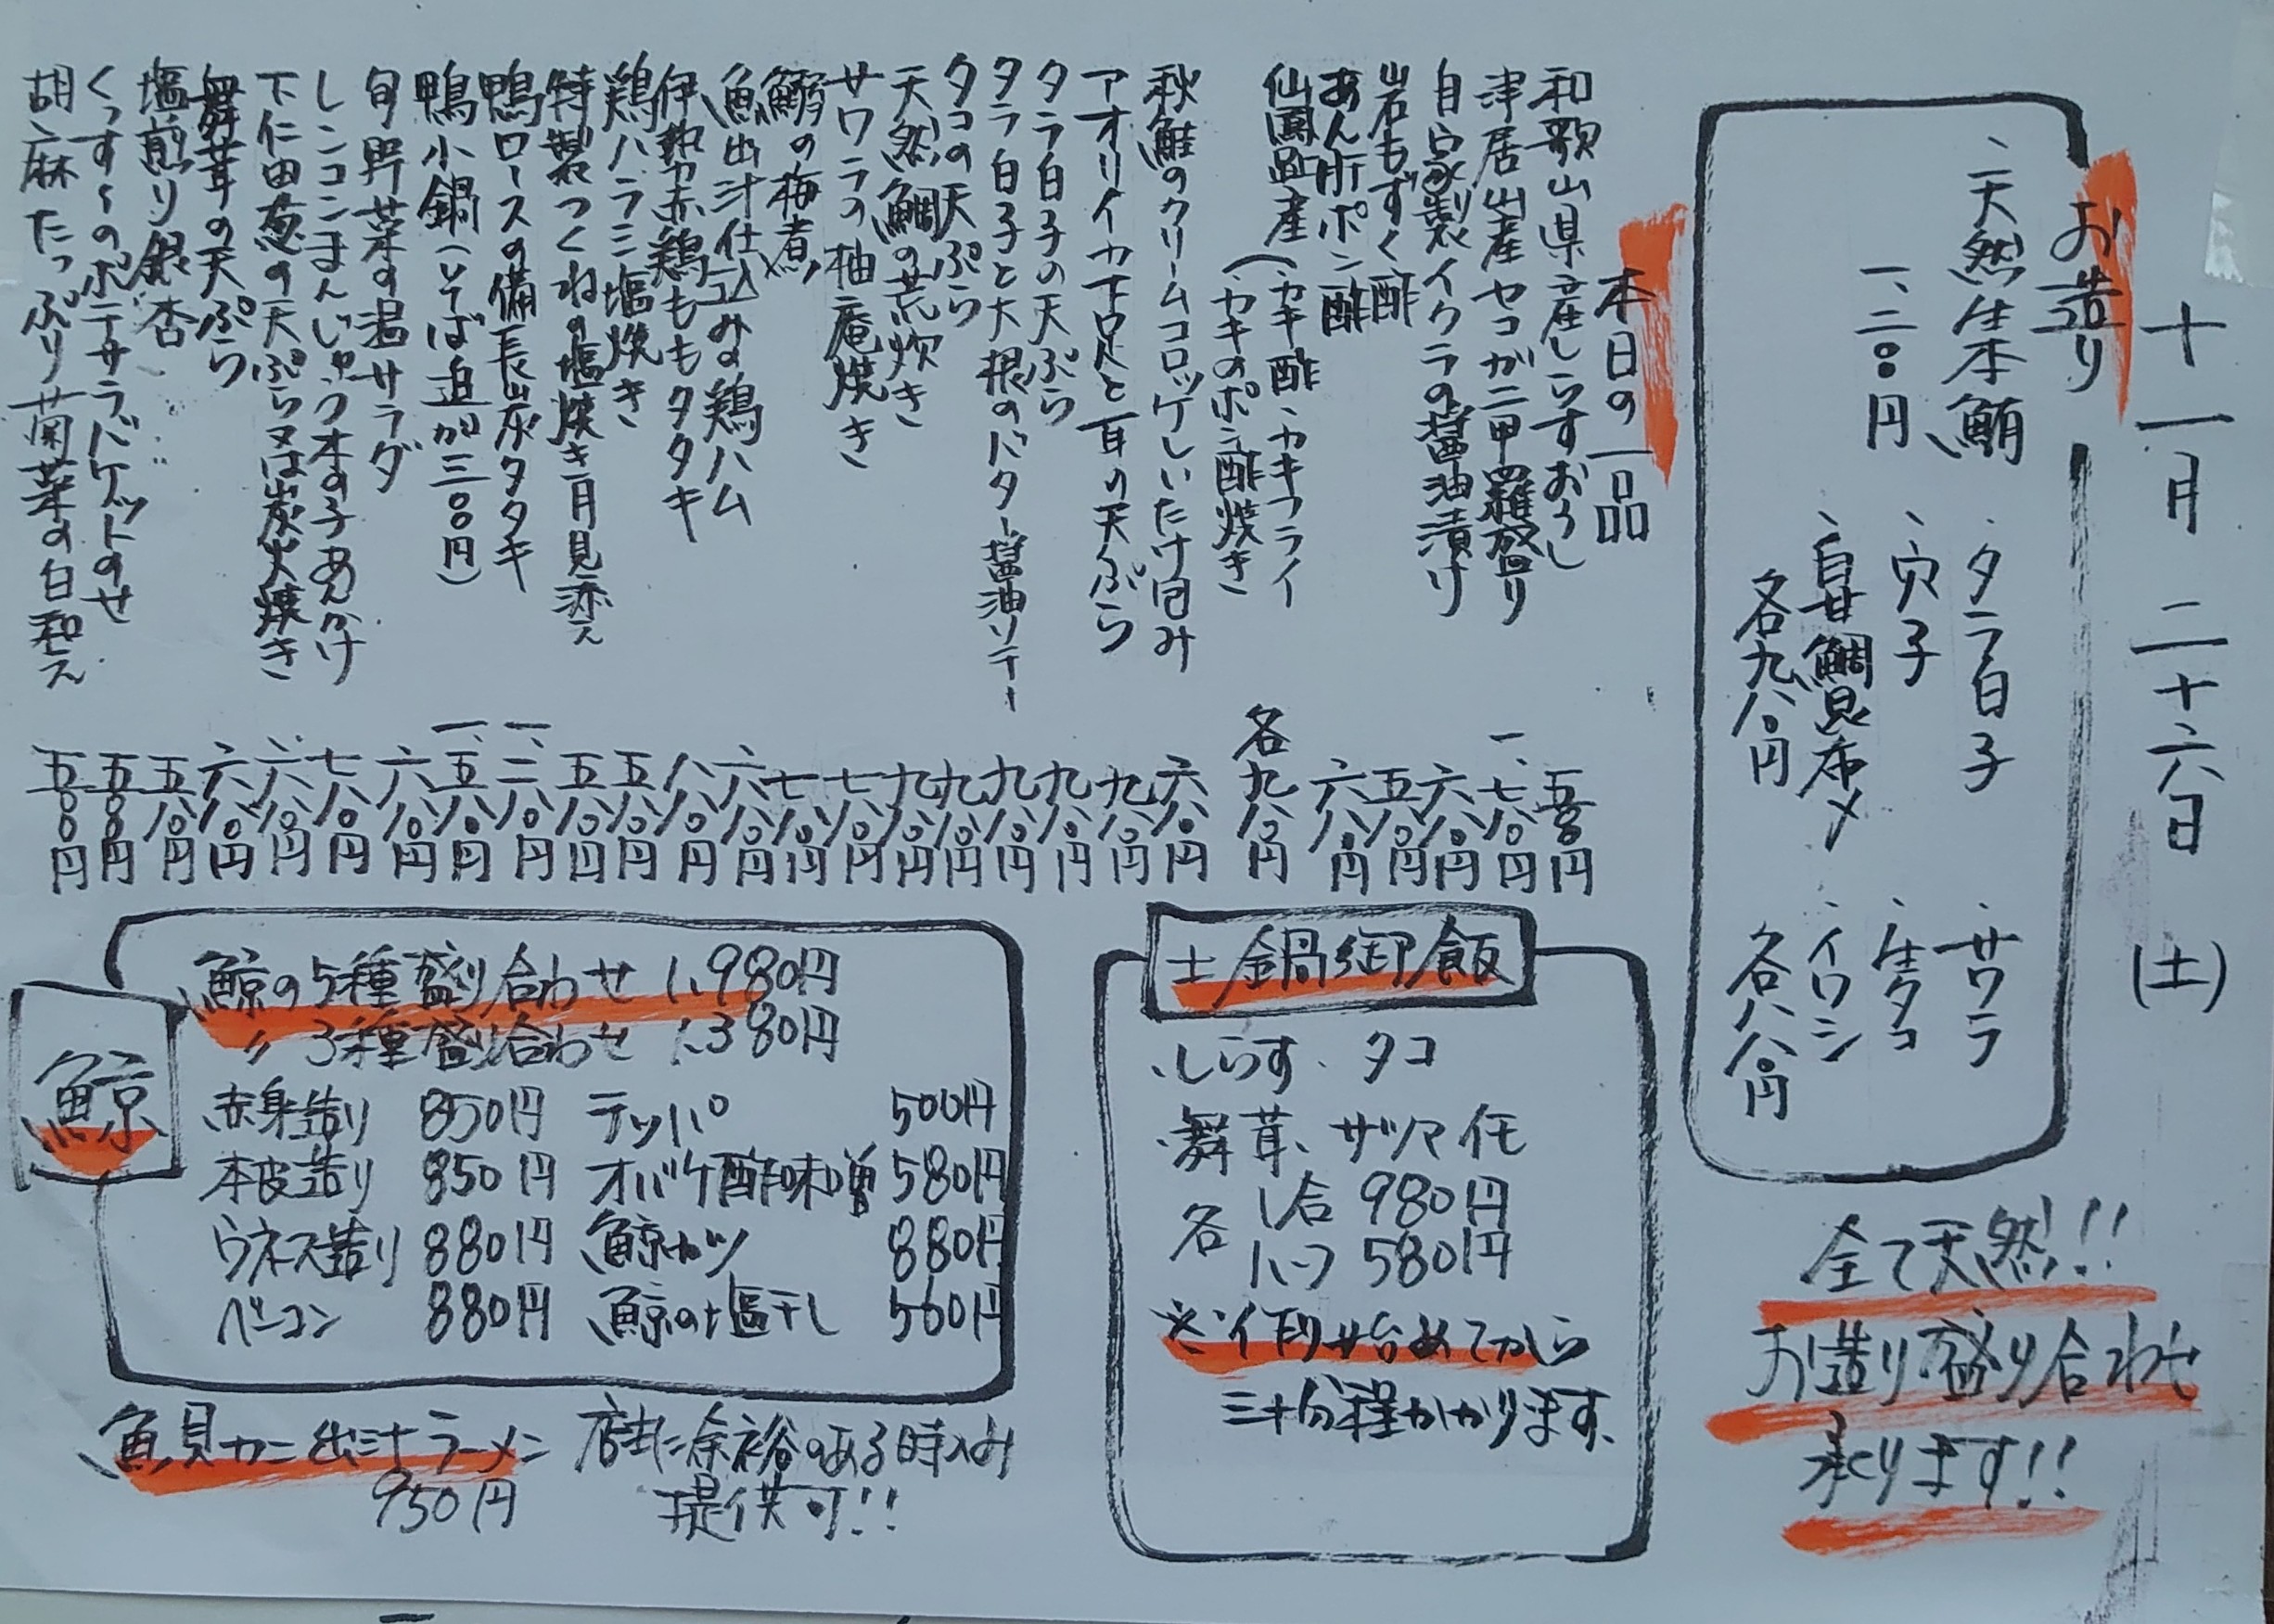 十一月二十六日（土）
お造り
、天然生本鮪
一、二八〇円
、タラ白子
、穴子
、甘鯛昆布〆
各九八〇円
、サワラ
、生タコ
、イワシ
各八八〇円
全て天然!!
お造り盛り合わせ
承ります!!
本日の一品
和歌山県産しらすおろし 五八〇円
津居山産セコガニ甲羅盛り 一、七八〇円
自家製イクラの醤油漬け 六八〇円
岩もずく酢 五八〇円
あん肝ポン酢 六八〇円
仙鳳趾産（、カキ酢、カキフライ
、カキのポン酢焼き 各九八〇円
秋鮭のクリームコロッケしいたけ包み 六八〇円
アオリイカ下足と耳の天ぷら 九八〇円
タラ白子の天ぷら 九八〇円
タラ白子と大根のバター醤油ソテー 九八〇円
タコの天ぷら 九八〇円
天然鯛の荒炊き 九八〇円
サワラの柚庵焼き 七八〇円
鰯の梅煮 七八〇円
魚出汁仕込みの鶏ハム 六八〇円
伊勢赤鶏ももタタキ 八八〇円
鶏ハラミ塩焼き 五八〇円
特製つくねの塩焼き月見添え 五八〇円
鴨ロースの備長炭タタキ 一、二八〇円
鴨小鍋（そば追加三〇〇円） 一、五八〇円
旬野菜の温サラダ 六八〇円
レンコンまんじゅう木の子あんかけ 七八〇円
下仁田葱の天ぷら又は炭火焼き 六八〇円
舞茸の天ぷら 六八〇円
塩煎り銀杏 五八〇円
くっす〜のポテサラバケットのせ 五〇〇円
胡麻たっぷり菊菜の白和え 五〇〇円
土鍋御飯
、しらす、タコ
、舞茸、サツマイモ
各 1合 980円
ハーフ 580円
※作り始めてから
三十分程かかります、
鯨
鯨の5種盛り合わせ 1,980円
〃 3種盛り合わせ 1,380円
赤身造り 850円 テッパ 500円
本皮造り 850円 オバケ酢味噌 580円
ウネス造り 880円 鯨カツ 880円
ベーコン 880円 鯨の塩干し 560円
魚貝カニ出汁ラーメン 店主に余裕のある時のみ
950円 提供可!!